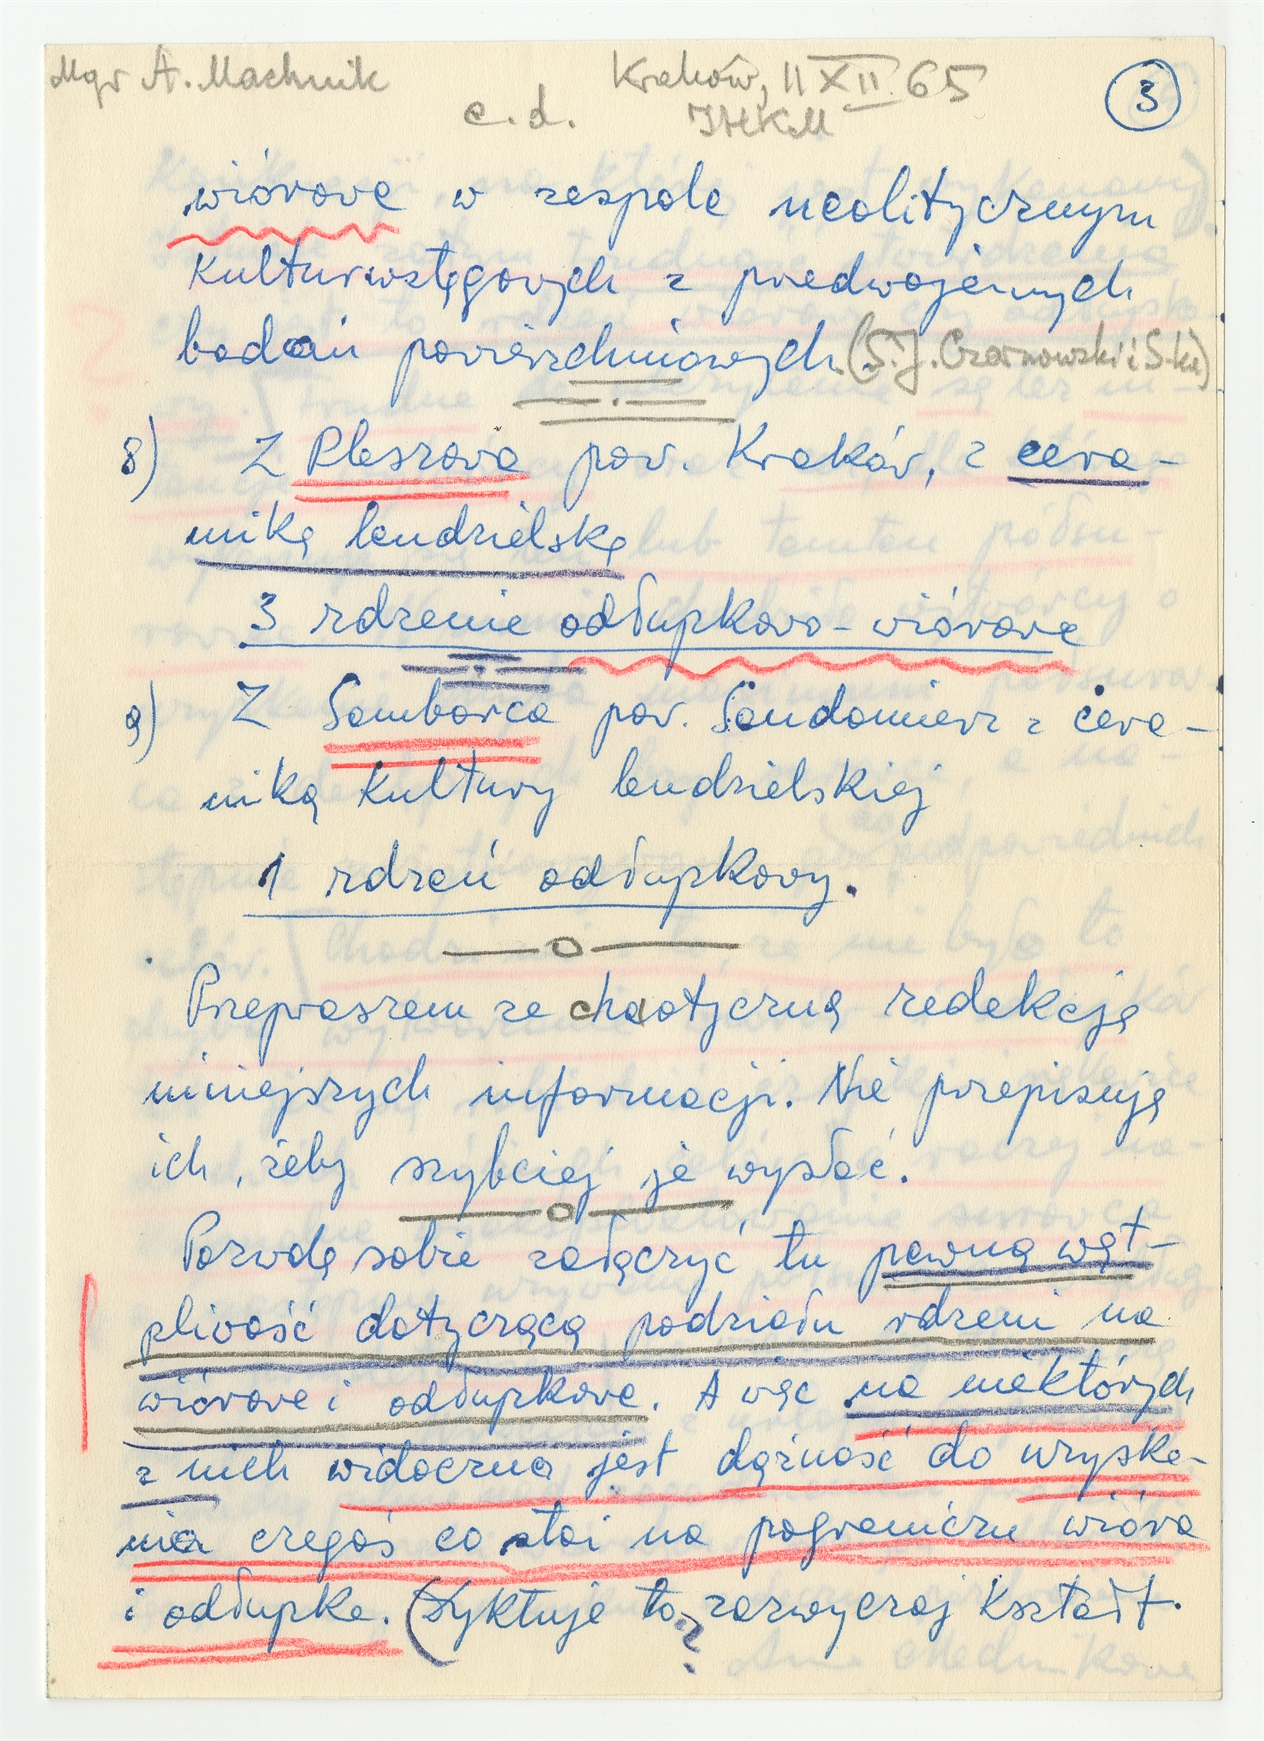 Mgr A. Machnik Kraków, 11 XII 65 3
c.d. IHKM
wiórowe w zespole neolitycznym
kultur wstęgowych z przedwojennych
badań powierzchniowych. (S.J. Czarnowski i S-ka)
8) Z Pleszowa pow. Kraków, z cera-
miką lendzielską
3 rdzenie odłupkowo-wiórowe
9) Z Samborca pow. Sandomierz z cera-
miką kultury lendzielskiej
1 rdzeń odłupkowy.
Przepraszam za chaotyczną redakcję
niniejszych informacji. Nie przepisuję
ich, żeby szybciej je wysłać.
Pozwolę sobie załączyć tu pewną wąt-
pliwość dotyczącą podziału rdzeni na
wiórowe i odłupkowe. A więc na niektórych
z nich widoczna jest dążność do uzyska-
nia czegoś co stoi na pograniczu wióra
i odłupka. (Dyktuje to ? zazwyczaj kształt